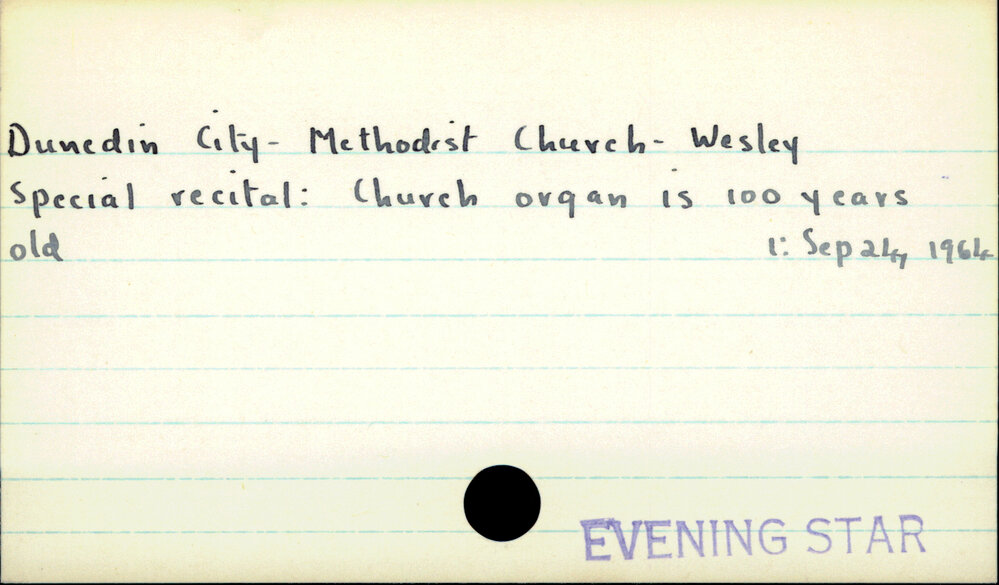 Dunedin City - Methodist Church - Wesley
Special recital: Church organ is 100 years
old 1: Sep 24, 1964
EVENING STAR